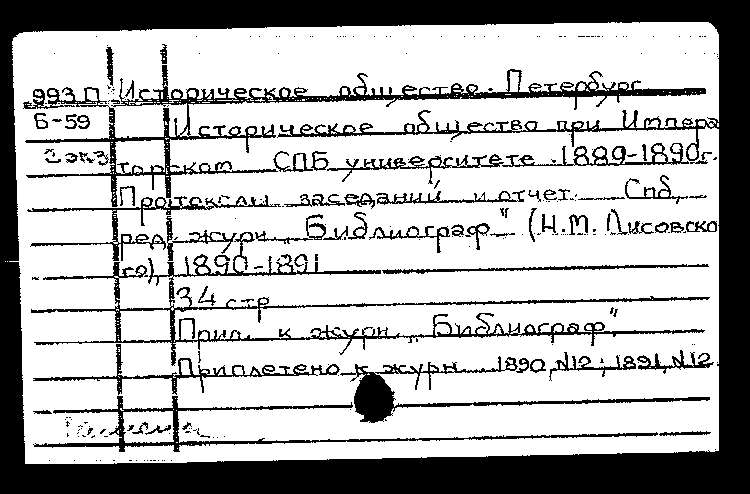 993 П Историческое общество. Петербург
Б-59 Историческое общество при Импера
2 экз торском СПБ университете. 1889-1890г.
Протоколы заседаний и отчет. Спб,
ред. журн. „Библиограф" (Н.М. Лисовско
го), 1890-1891
34 стр
Прил. к журн. „Библиограф",
Приплетено к журн. 1890, N12; 1891, N12.